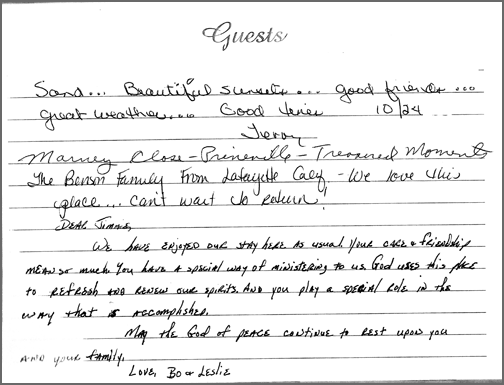 Guests
Sand... Beautiful sunsets... good friends...
great weather... Good 10/24
Marney Close - Prineville - Treasured Moments
The Benson Family From Lafayette Calif - We love this
place... can't wait to return!
DEAR Jimmie,
WE HAVE ENJOYED OUR STAY HERE AS USUAL. YOUR CARE & friendship
MEAN SO MUCH. YOU HAVE A SPECIAL WAY OF MINISTERING TO US. GOD USES this PLACE
TO REFRESH AND RENEW OUR SPIRITS. AND YOU PLAY A SPECIAL ROLE IN THE
WAY that is ACCOMPLISHED.
MAY the GOD OF PEACE CONTINUE TO REST UPON YOU
AND YOUR family.
LOVE, BO & LESLIE